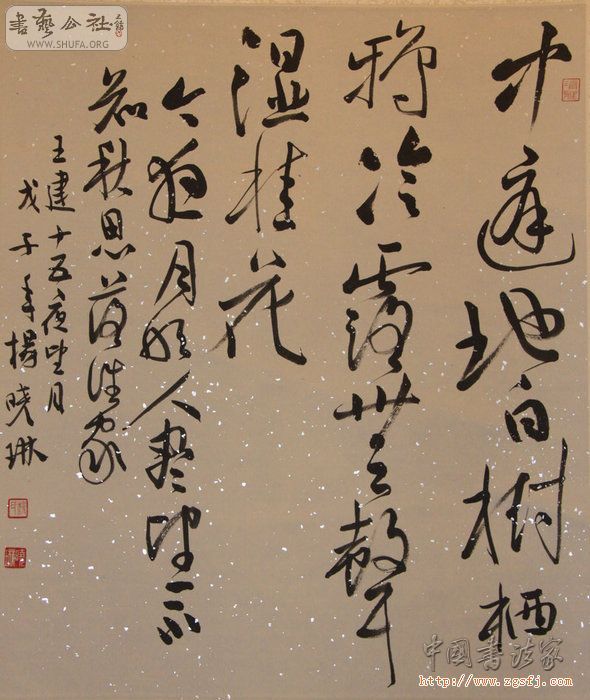 書藝公社
WWW.SHUFA.ORG
中庭地白樹栖
鴉冷露無聲
湿桂花
今夜月明人盡望不
知秋思落誰家
王建十五夜望月
戊子年楊曉琳
中國書法家
http://www.zgsfj.com